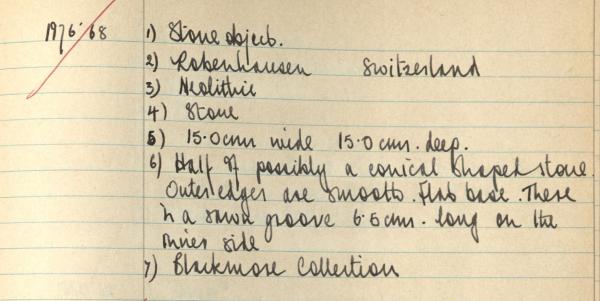 1976.68 1) Stone object.
2) Robenhausen Switzerland
3) Neolithic
4) Stone
5) 15.0cm wide 15.0 cm. deep.
6) Half of possibly a conical shaped stone.
Outer edges are smooth. Flat base. There
is a sawn groove 6.5cm. long on the
inner side
7) Blackmore Collection